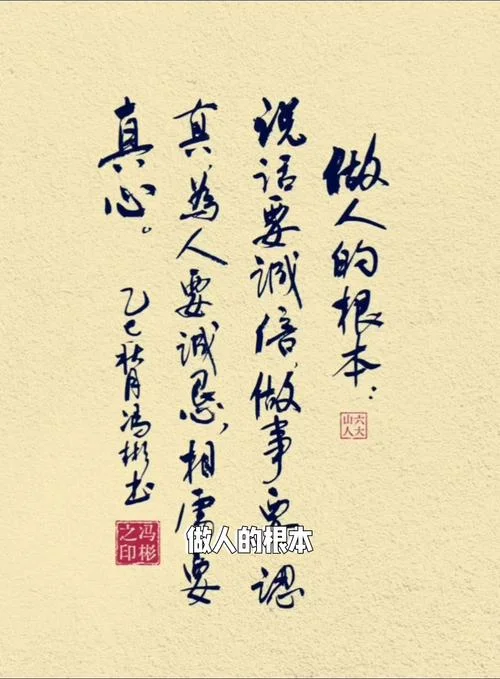 做人的根本：
说话要诚信，做事要認
真，為人要诚恳，相處要
真心。
乙巳秋月冯彬书
六大山人
冯彬之印
做人的根本